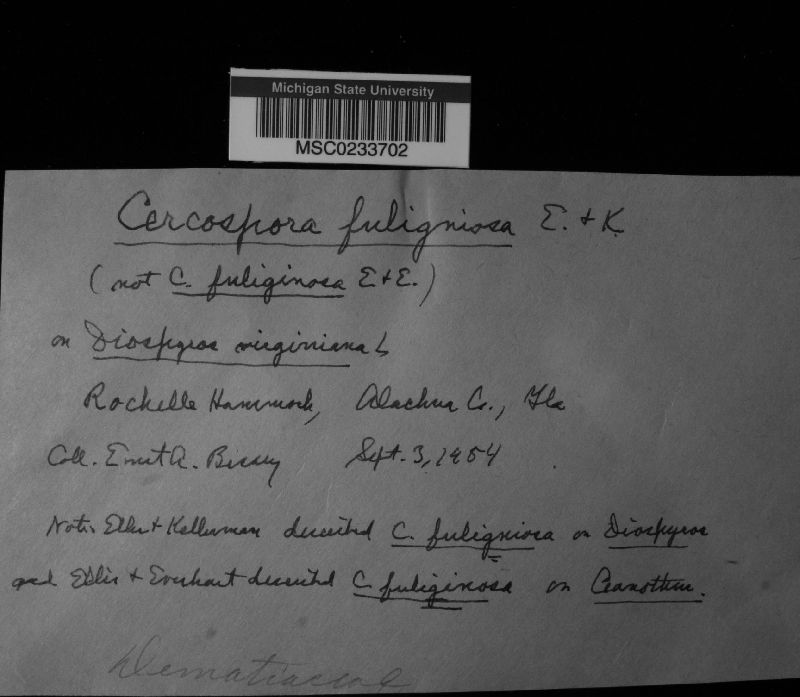 Michigan State University
MSC0233702
Cercospora fuligniosa E. & K.
(not C. fuliginosa E & E.)
on Diospyros virginiana L
Rochelle Hammock, Alachua Co., Fla
Coll. Ernst A. Bessey Sept. 3, 1954
Note. Ellis & Kellerman described C. fuligniosa on Diospyros
and Ellis & Everhart described C. fuliginosa on Ceanothus.
Dematiaceae